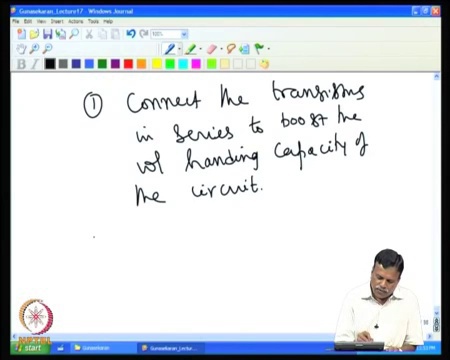 Gunasekaran_Lecture17 - Windows Journal
File Edit View Insert Actions Tools Help
100%
① Connect the transistors
in series to boost the
vol handing capacity of
the circuit.
NPTEL
start
Gunasekaran
Gunasekaran_Lectu...